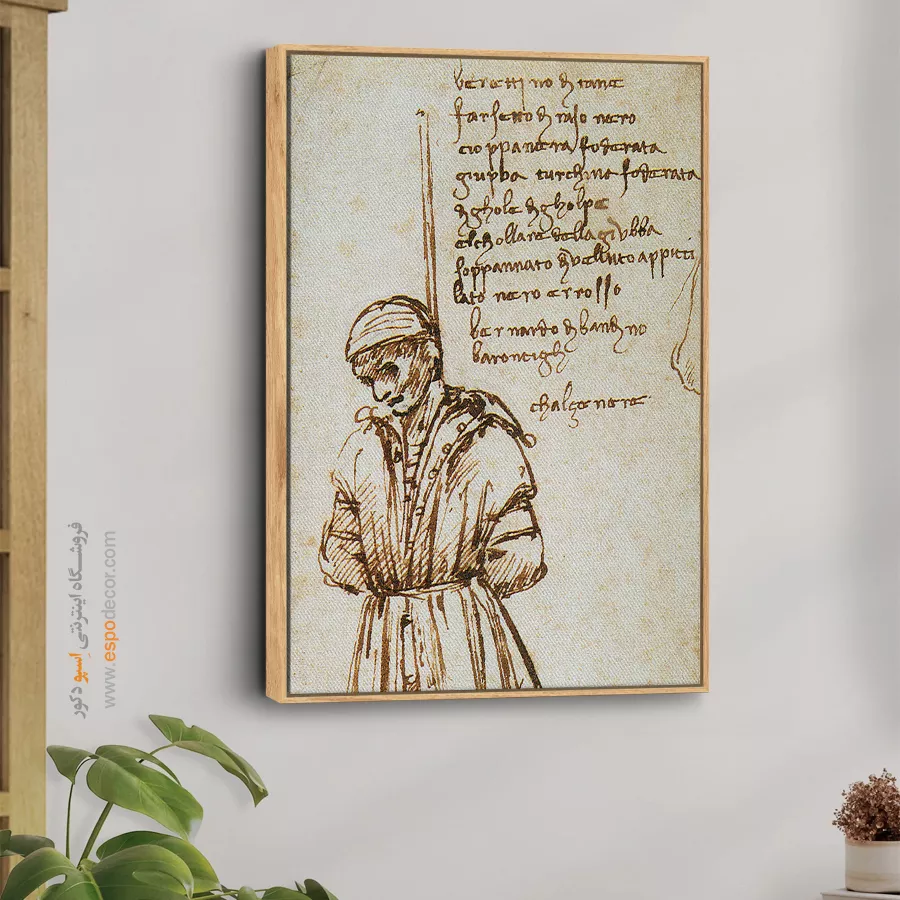 berettino di tane
farsetto di raso nero
cioppa nera foderata
giupba turchina foderata
di ghole di gholpe
el chollare della giubba
soppannato di velluto appicci
lato nero e rosso
bernardo di bandino
barontigh
chalze nere
فروشگاه اینترنتی اسپو دکور
www.espodecor.com